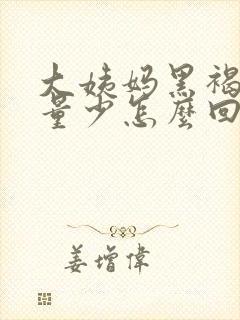 大姨妈黑褐
量少怎麼回
姜增偉